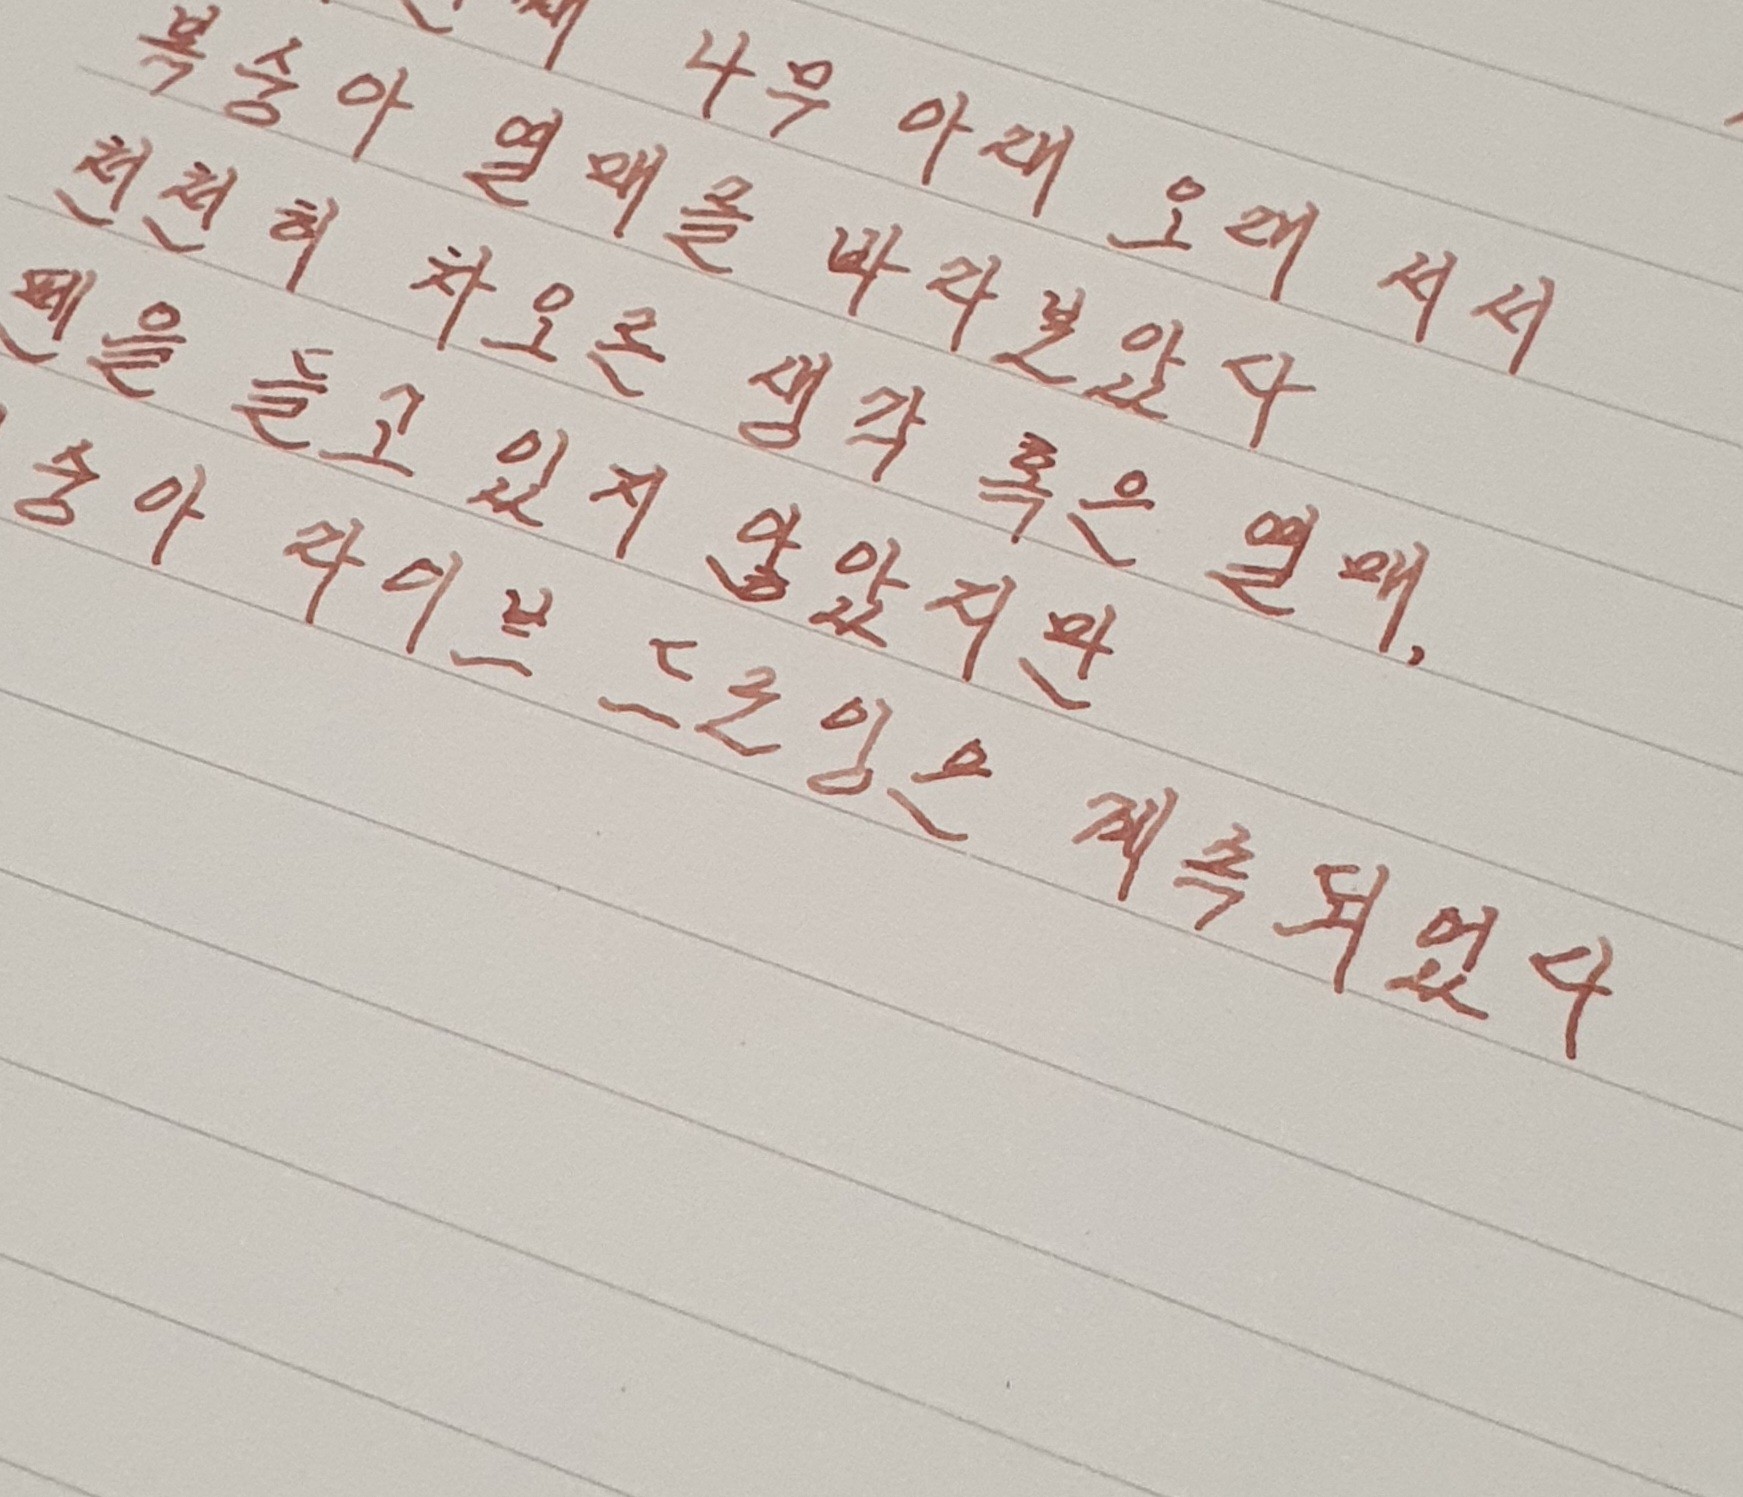 나무 아래 오래 서서
복숭아 열매를 바라보았다
천천히 차오른 생각 혹은 열매,
펜을 들고 있지 않았지만
숭아 라이브 드로잉은 계속되었다